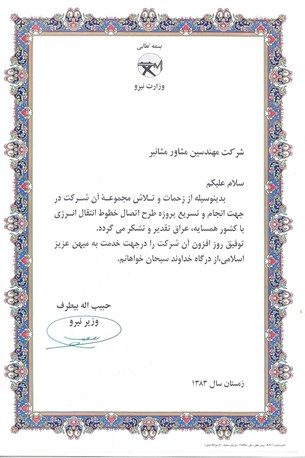 بسمه تعالی
وزارت نیرو
شرکت مهندسین مشاور مشانیر
سلام علیکم
بدینوسیله از زحمات و تلاش مجموعهٔ آن شرکت در
جهت انجام و تسریع پروژه طرح اتصال خطوط انتقال انرژی
با کشور همسایه، عراق تقدیر و تشکر می گردد.
توفیق روز افزون آن شرکت را درجهت خدمت به میهن عزیز
اسلامی،از درگاه خداوند سبحان خواهانم.
حبیب اله بیطرف
وزیر نیرو
زمستان سال ۱۳۸۳